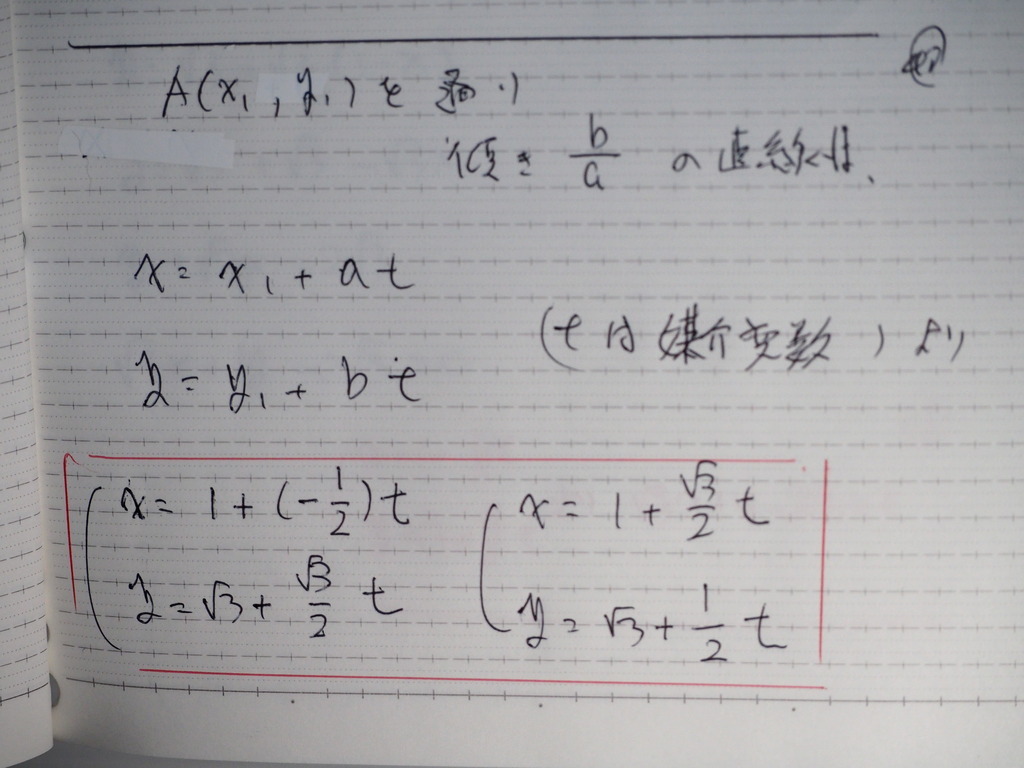 A(x₁, y₁)を通り
傾き b/a の直線は、
x = x₁ + at
(tは媒介変数)より
y = y₁ + bt
x = 1 + (-1/2)t
y = √3 + √3/2 t
x = 1 + √3/2 t
y = √3 + 1/2 t